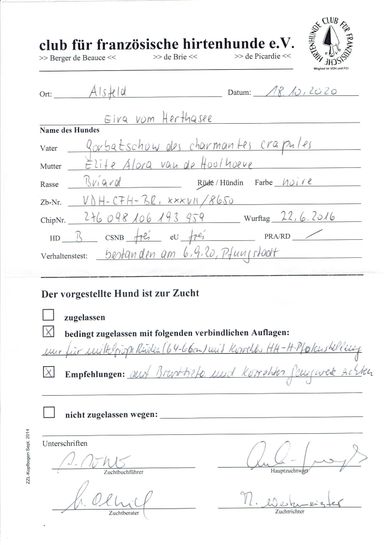 club für französische hirtenhunde e.V.
>> Berger de Beauce << >> de Brie << >> de Picardie <<
CLUB FÜR FRANZÖSISCHE HIRTENHUNDE
Mitglied im VDH und FCI
Ort: Alsfeld Datum: 18.10.2020
Elva vom Herthasee
Name des Hundes
Vater Gorbatschow des charmantes crapules
Mutter Elite Alora van de Hoolhoeve
Rasse Briard Rüde / Hündin Farbe noire
Zb-Nr. VDH-CFH-BR. XXXVII/8650
ChipNr. 276 098 106 193 959 Wurftag 22.6.2016
HD B CSNB frei eU frei PRA/RD /
Verhaltenstest: bestanden am 6.9.20, Pfungstadt
Der vorgestellte Hund ist zur Zucht
zugelassen
X bedingt zugelassen mit folgenden verbindlichen Auflagen:
nur für mittelgroße Rüden (64-66cm) mit korrekter HH-H-Pfotenstellung
X Empfehlungen: mit Brusttiefe und korrektem Gangwerk
nicht zugelassen wegen:
Unterschriften
Zuchtbuchführer Hauptzuchtwart
Zuchtberater Zuchtrichter
ZZL Haupbogen Sept. 2014